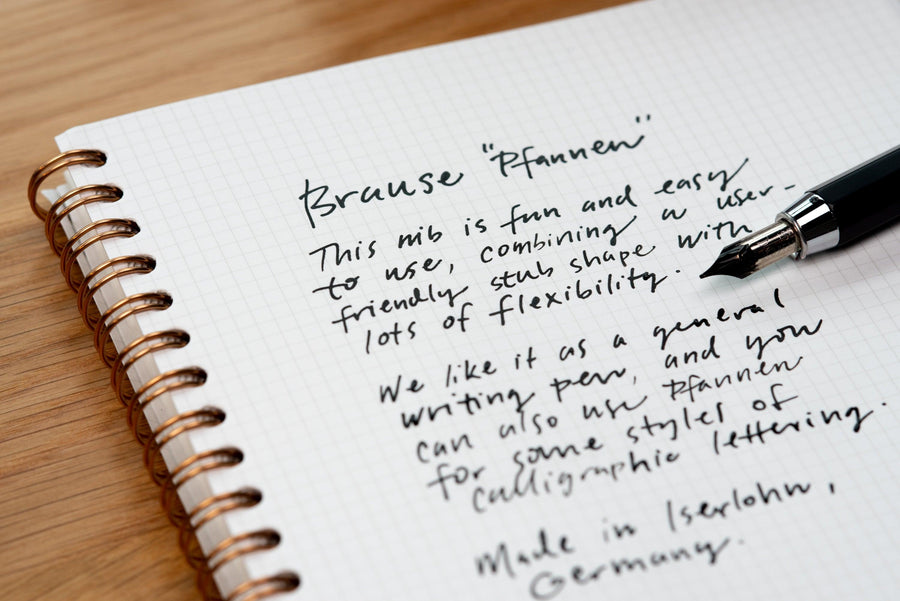 Brause "Pfannen"
This nib is fun and easy
to use, combining a user-
friendly stub shape with
lots of flexibility.
We like it as a general
writing pen, and you
can also use Pfannen
for some styles of
calligraphic lettering.
Made in Iserlohn,
Germany.